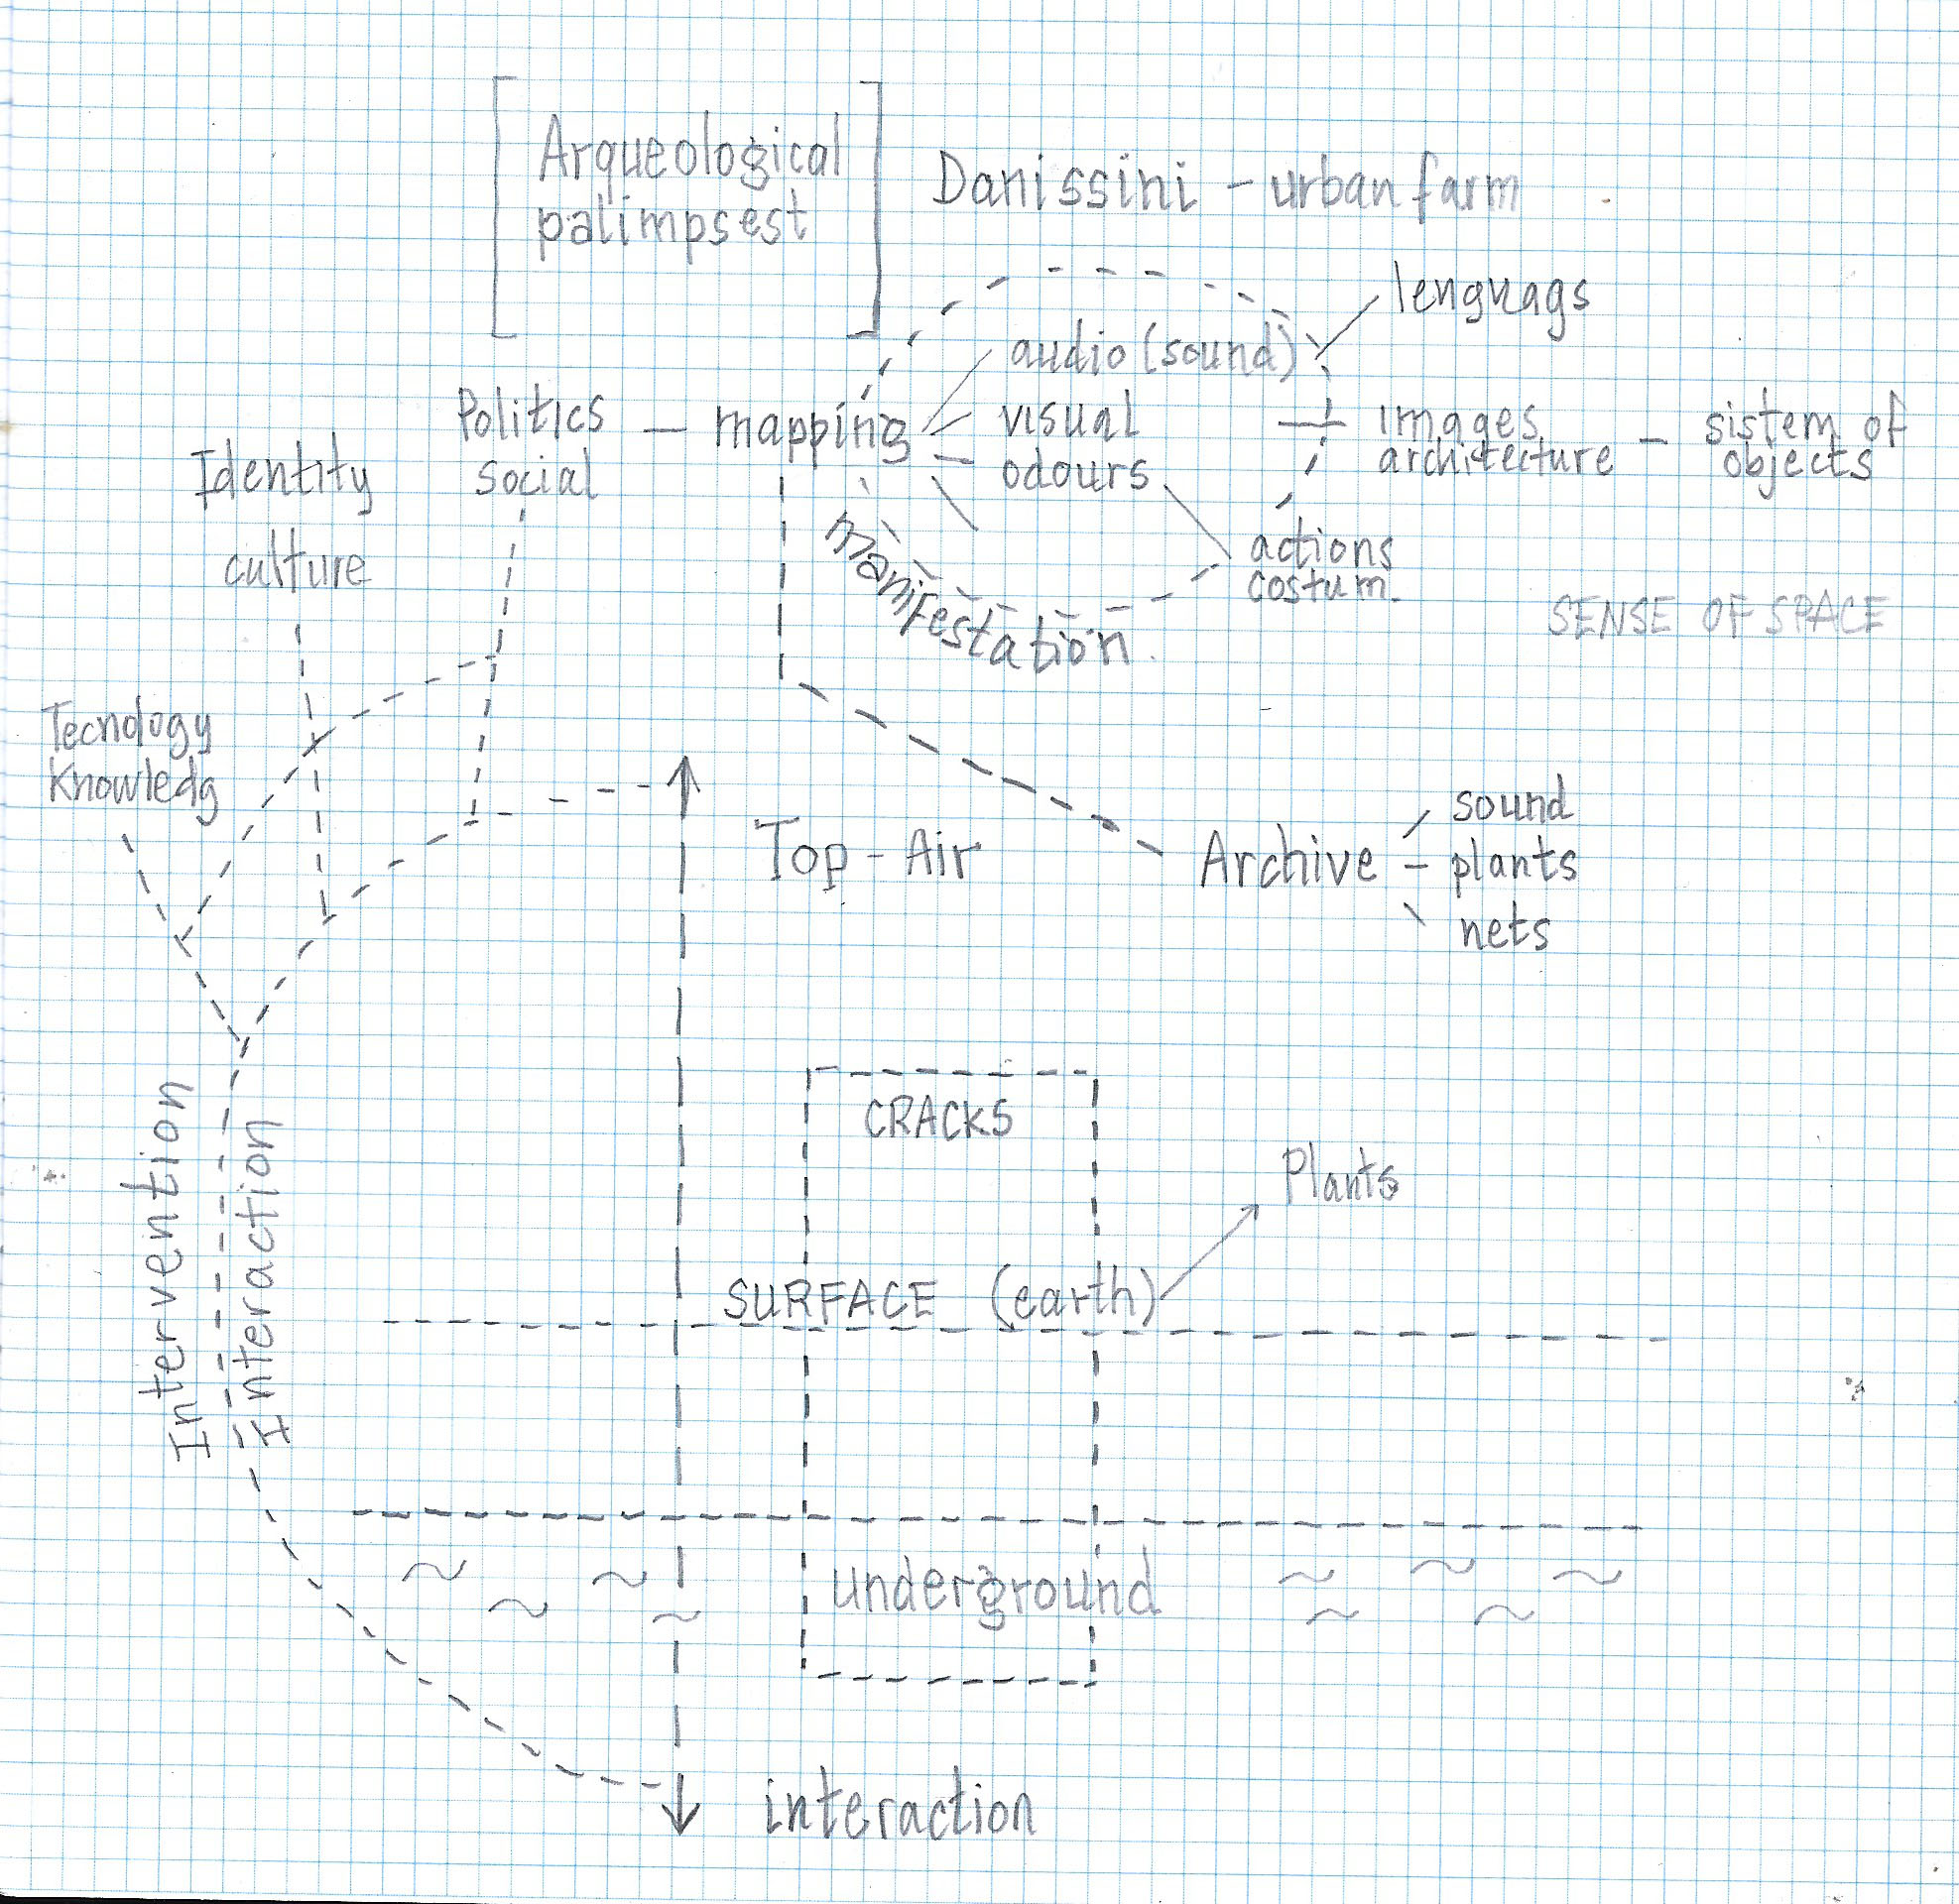 Arqueological
palimpsest
Danissini - urban farm
lenguags
audio (sound)
Politics - mapping
visual
images
architecture - sistem of
objects
Identity
social
odours
culture
manifestation
actions
costum.
SENSE OF SPACE
Tecnology
Knowledg
Top - Air
Archive
sound
plants
nets
CRACKS
Plants
Intervention
Interaction
SURFACE (earth)
underground
interaction